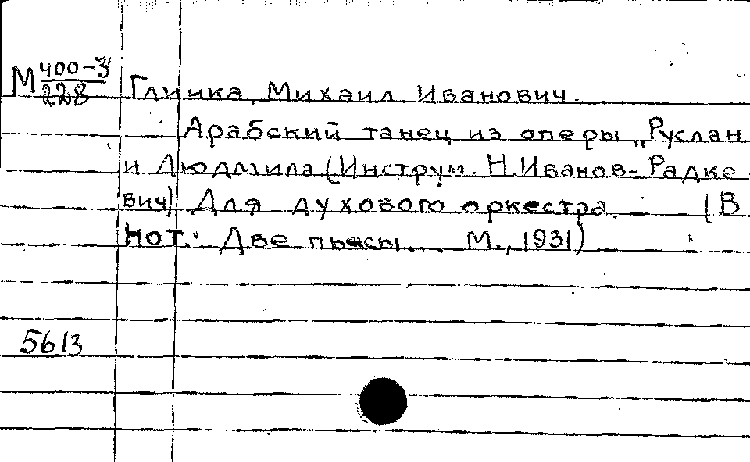 М 400-3
228
Глинка, Михаил Иванович.
Арабский танец из оперы „Руслан
и Людмила (Инструм. Н. Иванов-Радке
вич) Для духового оркестра. (В
нот.: Две пьесы... М., 1931)
5613